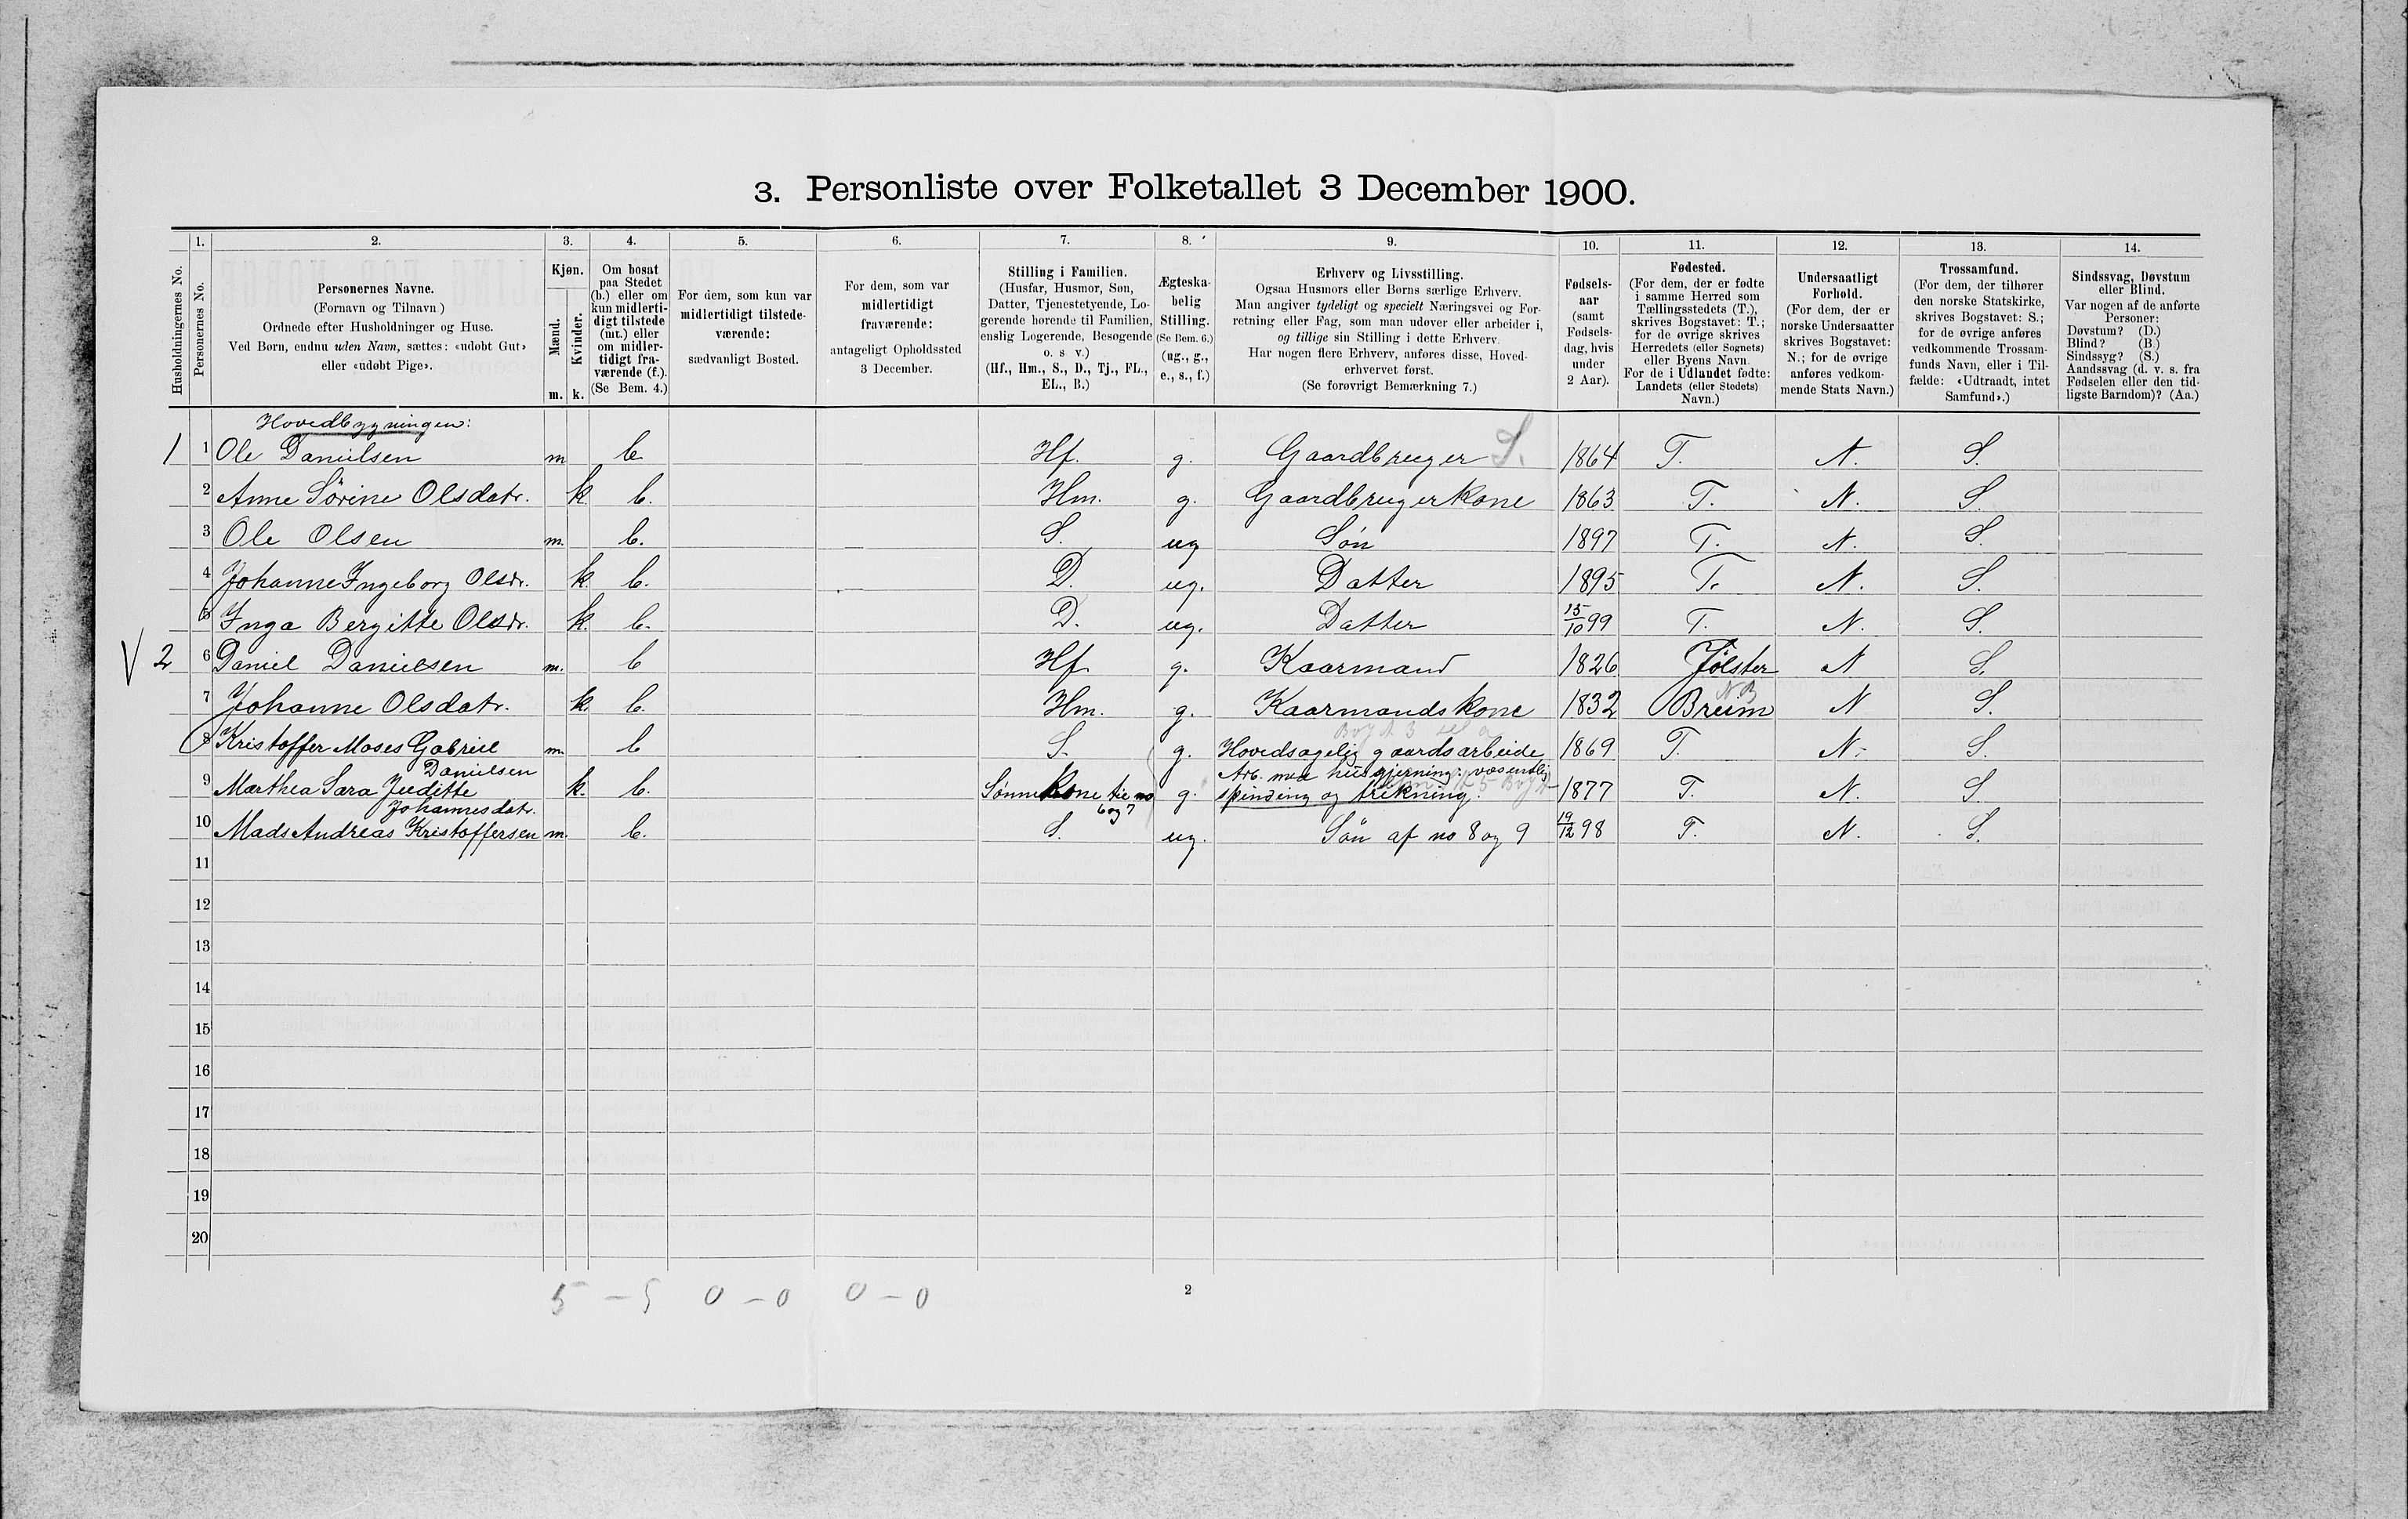 3. Personliste over Folketallet 3 December 1900.
1. 2. 3. 4. 5. 6. 7. 8. 9. 10. 11. 12. 13. 14.
Husholdningernes No.
Personernes No.
Personernes Navne.
(Fornavn og Tilnavn)
Ordnede efter Husholdninger og Huse.
Ved Børn, endnu uden Navn, sættes: «udøbt Gut»
eller «udøbt Pige».
Kjøn.
Mænd.
Kvinder.
m. k.
Om bosat
paa Stedet
(b.) eller om
kun midlerti-
digt tilstede
(mt.) eller
om midler-
tidigt fra-
værende (f.).
(Se Bem. 4.)
For dem, som kun var
midlertidigt tilstede-
værende:
sædvanligt Bosted.
For dem, som var
midlertidigt
fraværende:
antageligt Opholdssted
3 December.
Stilling i Familien.
(Husfar, Husmor, Søn,
Datter, Tjenestetyende, Lo-
gerende hørende til Familien,
enslig Logerende, Besøgende
o. s. v.)
(Hf., Hm., S., D., Tj., FL.,
EL., B.)
Ægteska-
belig
Stilling.
(Se Bem. 6.)
(ug., g.,
e., s., f.)
Erhverv og Livsstilling.
Ogsaa Husmors eller Børns særlige Erhverv.
Man angiver tydeligt og specielt Næringsvei og For-
retning eller Fag, som man udøver eller arbeider i,
og tillige sin Stilling i dette Erhverv.
Har nogen flere Erhverv, anføres disse, Hoved-
erhvervet først.
(Se forøvrigt Bemærkning 7.)
Fødsels-
aar
(samt
Fødsels-
dag, hvis
under
2 Aar).
Fødested.
(For dem, der er fødte
i samme Herred som
Tællingsstedets (T.),
skrives Bogstavet: T.;
for de øvrige skrives
Herredets (eller Sognets)
eller Byens Navn.
For de i Udlandet fødte:
Landets (eller Stedets)
Navn.)
Undersaatligt
Forhold.
(For dem, der er
norske Undersaatter
skrives Bogstavet:
N.; for de øvrige
anføres vedkom-
mende Stats Navn.)
Trossamfund.
(For dem, der tilhører
den norske Statskirke,
skrives Bogstavet: S.;
for de øvrige anføres
vedkommende Trossam-
funds Navn, eller i Til-
fælde: «Udtraadt, intet
Samfund».)
Sindssvag, Døvstum
eller Blind.
Var nogen af de anførte
Personer:
Døvstum? (D.)
Blind? (B.)
Sindssyg? (S.)
Aandssvag (d. v. s. fra
Fødselen eller den tid-
ligste Barndom)? (Aa.)
Hovedbygningen:
1 1 Ole Danielsen m b Hf. g. Gaardbruger S. 1864 T. N. S.
2 Anne Sörine Olsdatr. k b. Hm. g. Gaardbrugerkone 1863 T. N. S.
3 Ole Olsen m. b. S. ug Søn 1897 T. N. S.
4 Johanne Ingeborg Olsdr. k b. D. ug. Datter 1895 T. N. S.
5 Inga Bergitte Olsdr. k. b. D. ug. Datter 15/10 99 T. N. S.
V 2 6 Daniel Danielsen m. b Hf g. Kaarmand 1826 Jölster N S.
7 Johanne Olsdatr. k. b. Hm. g. Kaarmandskone 1832 Breim N S.
8 Kristoffer Moses Gabriel m. b S. g. Hovedsagelig gaardsarbeide 1869 T. N. S.
Danielsen
Arb. med husgjerning: væsentlig
9 Marthea Sara Juditte k. b. Sønnekone til no g. spinding og strikning. 1877 T. N. S.
Johannesdatr. 6 og 7
10 Mads Andreas Kristoffersen m. b. S. ug. Sön af no 8 og 9 19/12 98 T. N. S.
11
12
13
14
15
16
17
18
19
20
5 – 5 0 – 0 0 – 0
2